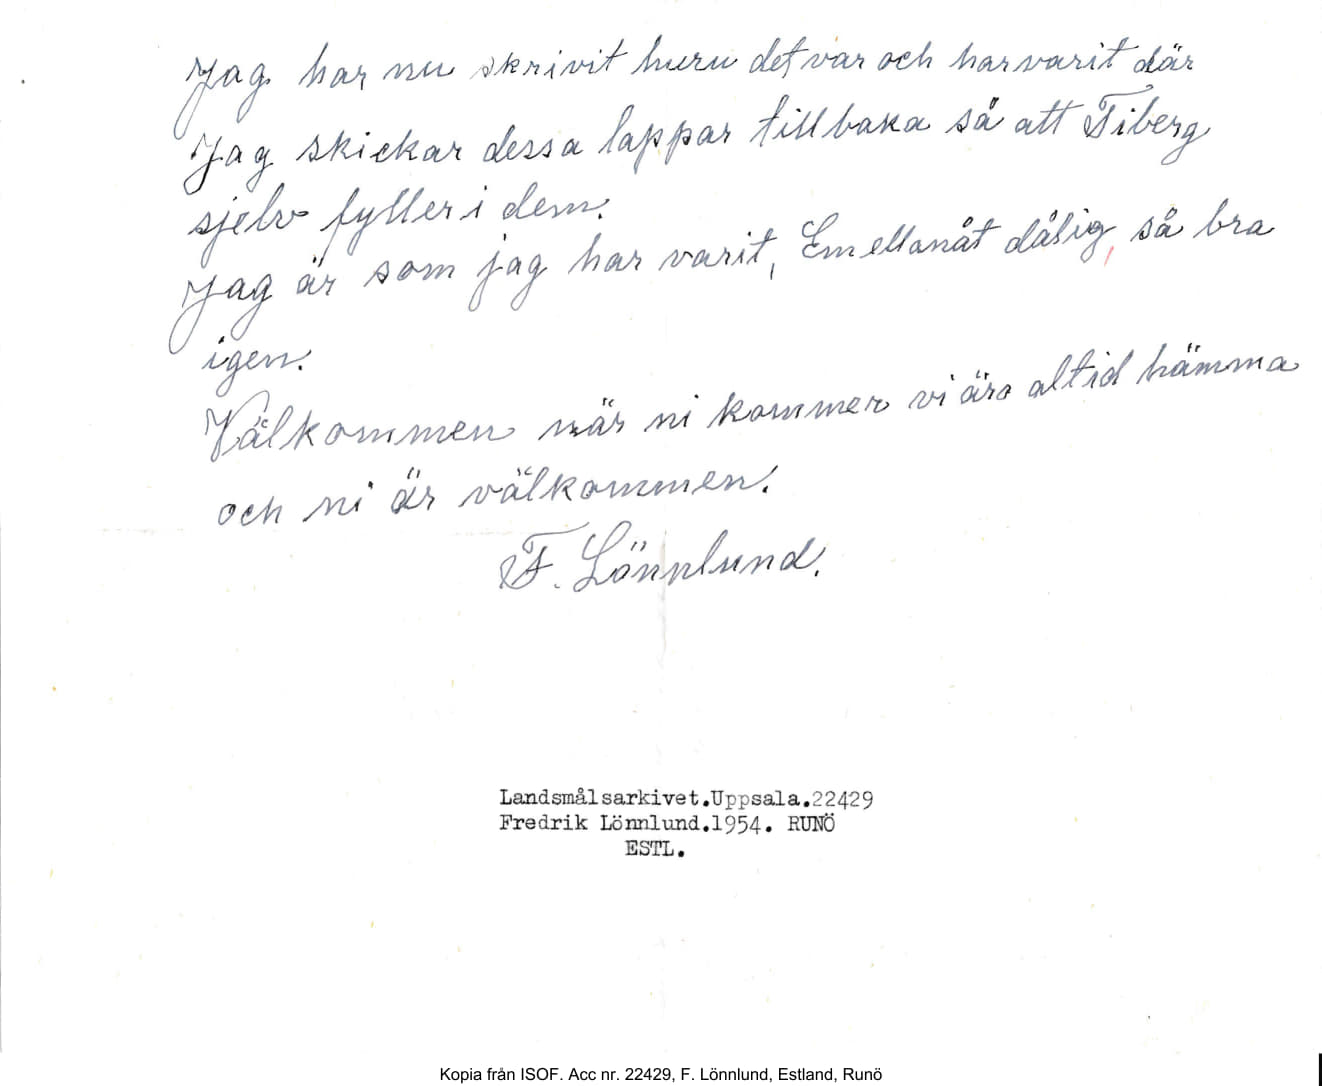 Jag har nu skrivit huru det var och har varit där
Jag skickar dessa lappar tillbaka så att Tiberg
sjelv fyller i dem.
Jag är som jag har varit, Emellanåt dålig, så bra
igen.
Välkommen när ni kommer vi äro altid hämma
och ni är välkommen.
F. Lönnlund.
Landsmålsarkivet.Uppsala.22429
Fredrik Lönnlund.1954. RUNÖ
ESTL.
Kopia från ISOF. Acc nr. 22429, F. Lönnlund, Estland, Runö